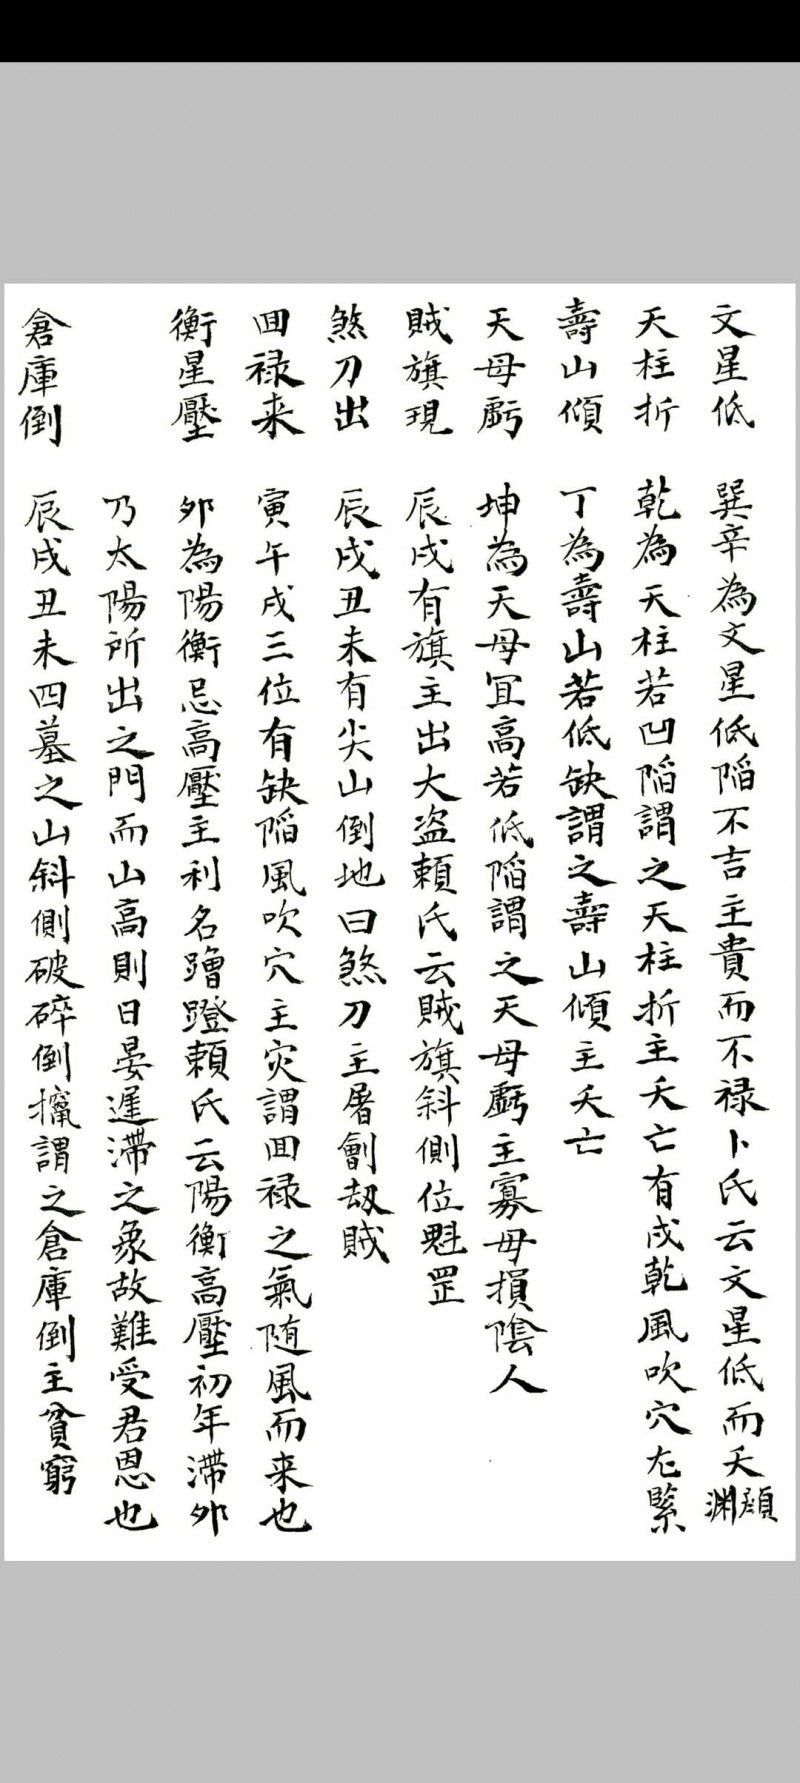 文星低 巽辛為文星低陷不吉主貴而不禄卜氏云文星低而夭顔渊
天柱折 乾為天柱若凹陷謂之天柱折主夭亡有戌乾風吹穴尤緊
壽山傾 丁為壽山若低缺謂之壽山傾主夭亡
天母虧 坤為天母冝高若低陷謂之天母虧主寡母損陰人
賊旗現 辰戌有旗主出大盗頼氏云賊旗斜側位魁罡
煞刀出 辰戌丑未有尖山倒地曰煞刀主屠劊劫賊
囬禄来 寅午戌三位有缺陷風吹穴主灾謂囬禄之氣随風而来也
衡星壓 夘為陽衡忌高壓主利名蹭蹬頼氏云陽衡高壓初年滞夘
乃太陽所出之門而山高則日晏遅滞之象故難受君恩也
倉庫倒 辰戌丑未四墓之山斜側破碎倒擨謂之倉庫倒主貧窮